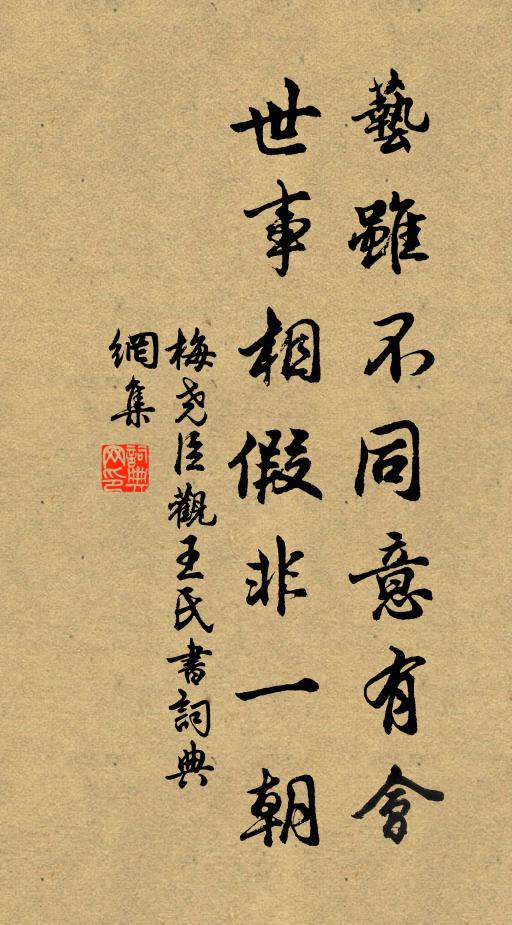 藝雖不同意有會
世事相假非一朝
梅尧臣觀王氏書詞典
網集
詞典網印